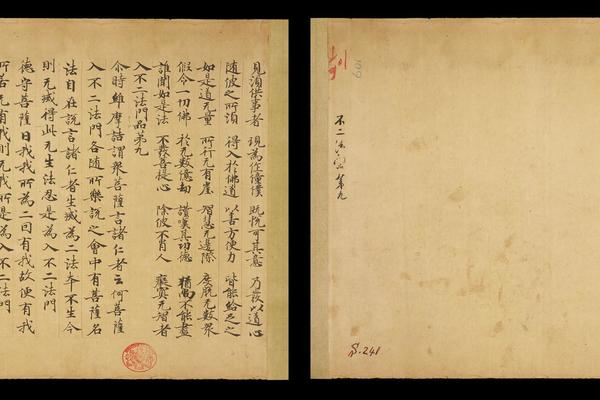 見須供事者 現為作僮僕 既悅可其意 乃發以道心
隨彼之所須 得入於佛道 以善方便力 皆能給足之
如是道无量 所行无有崖 智慧无邊際 度脫无數眾
假令一切佛 於无數億劫 讚嘆其功德 猶尚不能盡
誰聞如是法 不發菩提心 除彼不肖人 癡冥无智者
入不二法門品第九
尒時維摩詰謂眾菩薩言諸仁者云何菩薩
入不二法門各隨所樂說之會中有菩薩名
法自在說言諸仁者生滅為二法本不生今
則无滅得此无生法忍是為入不二法門
德守菩薩曰我我所為二因有我故便有我
所若无有我則无我所是為入不二法門
不二法 第九
S.241